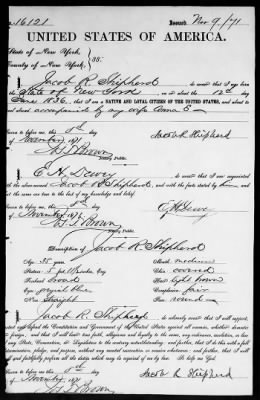 16121 Issued Nov 9/71
UNITED STATES OF AMERICA.
State of New York,
County of New York, } ss:
I, Jacob R Shipherd do swear that I was born in the
State of New York, on or about the 12th
day of June 1836, that I am a NATIVE AND LOYAL CITIZEN OF THE UNITED STATES, and about
accompanied by my wife
Sworn to before me, this 8th
day of November 1871 Jacob R Shipherd
Brown
Notary Public.
I, C. H. Dewey do swear that I am acquainted with the
above named Jacob R Shipherd, and with the facts stated by him and
to the best of my knowledge and belief.
Sworn to before me, this 8th
day of November 1871 C H Dewey
Brown
Notary Public.
Description of Jacob R Shipherd
Age: 35 years Mouth: medium
Stature: 5 feet inches, Eng. Chin: round
Forehead: broad Hair: light brown
Eyes: Complexion: fair
Nose: Straight Face: round
I, Jacob R. Shipherd do solemnly swear that I will support,
protect and defend the Constitution and Government of the United States against all enemies, whether domestic
or foreign, and that I will bear true faith, allegiance and loyalty to the same, any ordinance, resolution or law
of any State, Convention, or Legislature to the contrary notwithstanding; and further, that I do this with a full
determination, pledge, and purpose, without any mental reservation or evasion whatsoever; and further, that I will
well and faithfully perform all the duties which may be required of me by law. So help me God.
Sworn to before me, this 8th
day of November 1871 Jacob R Shipherd
Brown